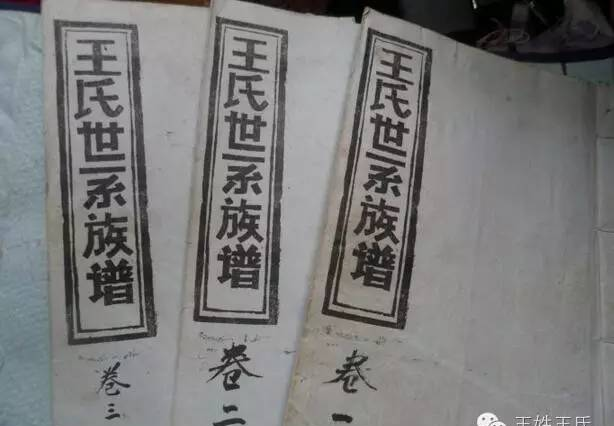 王氏世系族谱
卷三
王氏世系族谱
卷二
王氏世系族谱
卷一
王姓王氏